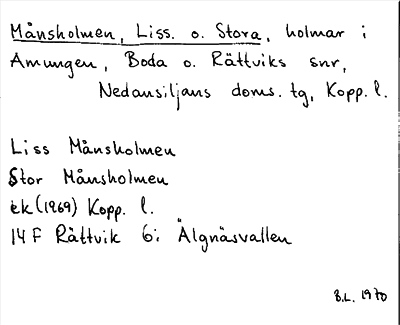 Månsholmen, Liss. o. Stora, holmar i
Amungen, Boda o. Rättviks snr,
Nedansiljans doms. tg, Kopp. l.
Liss Månsholmen
Stor Månsholmen
ek (1969) Kopp. l.
14 F Rättvik 6i Älgnäsvallen
B.L. 1970